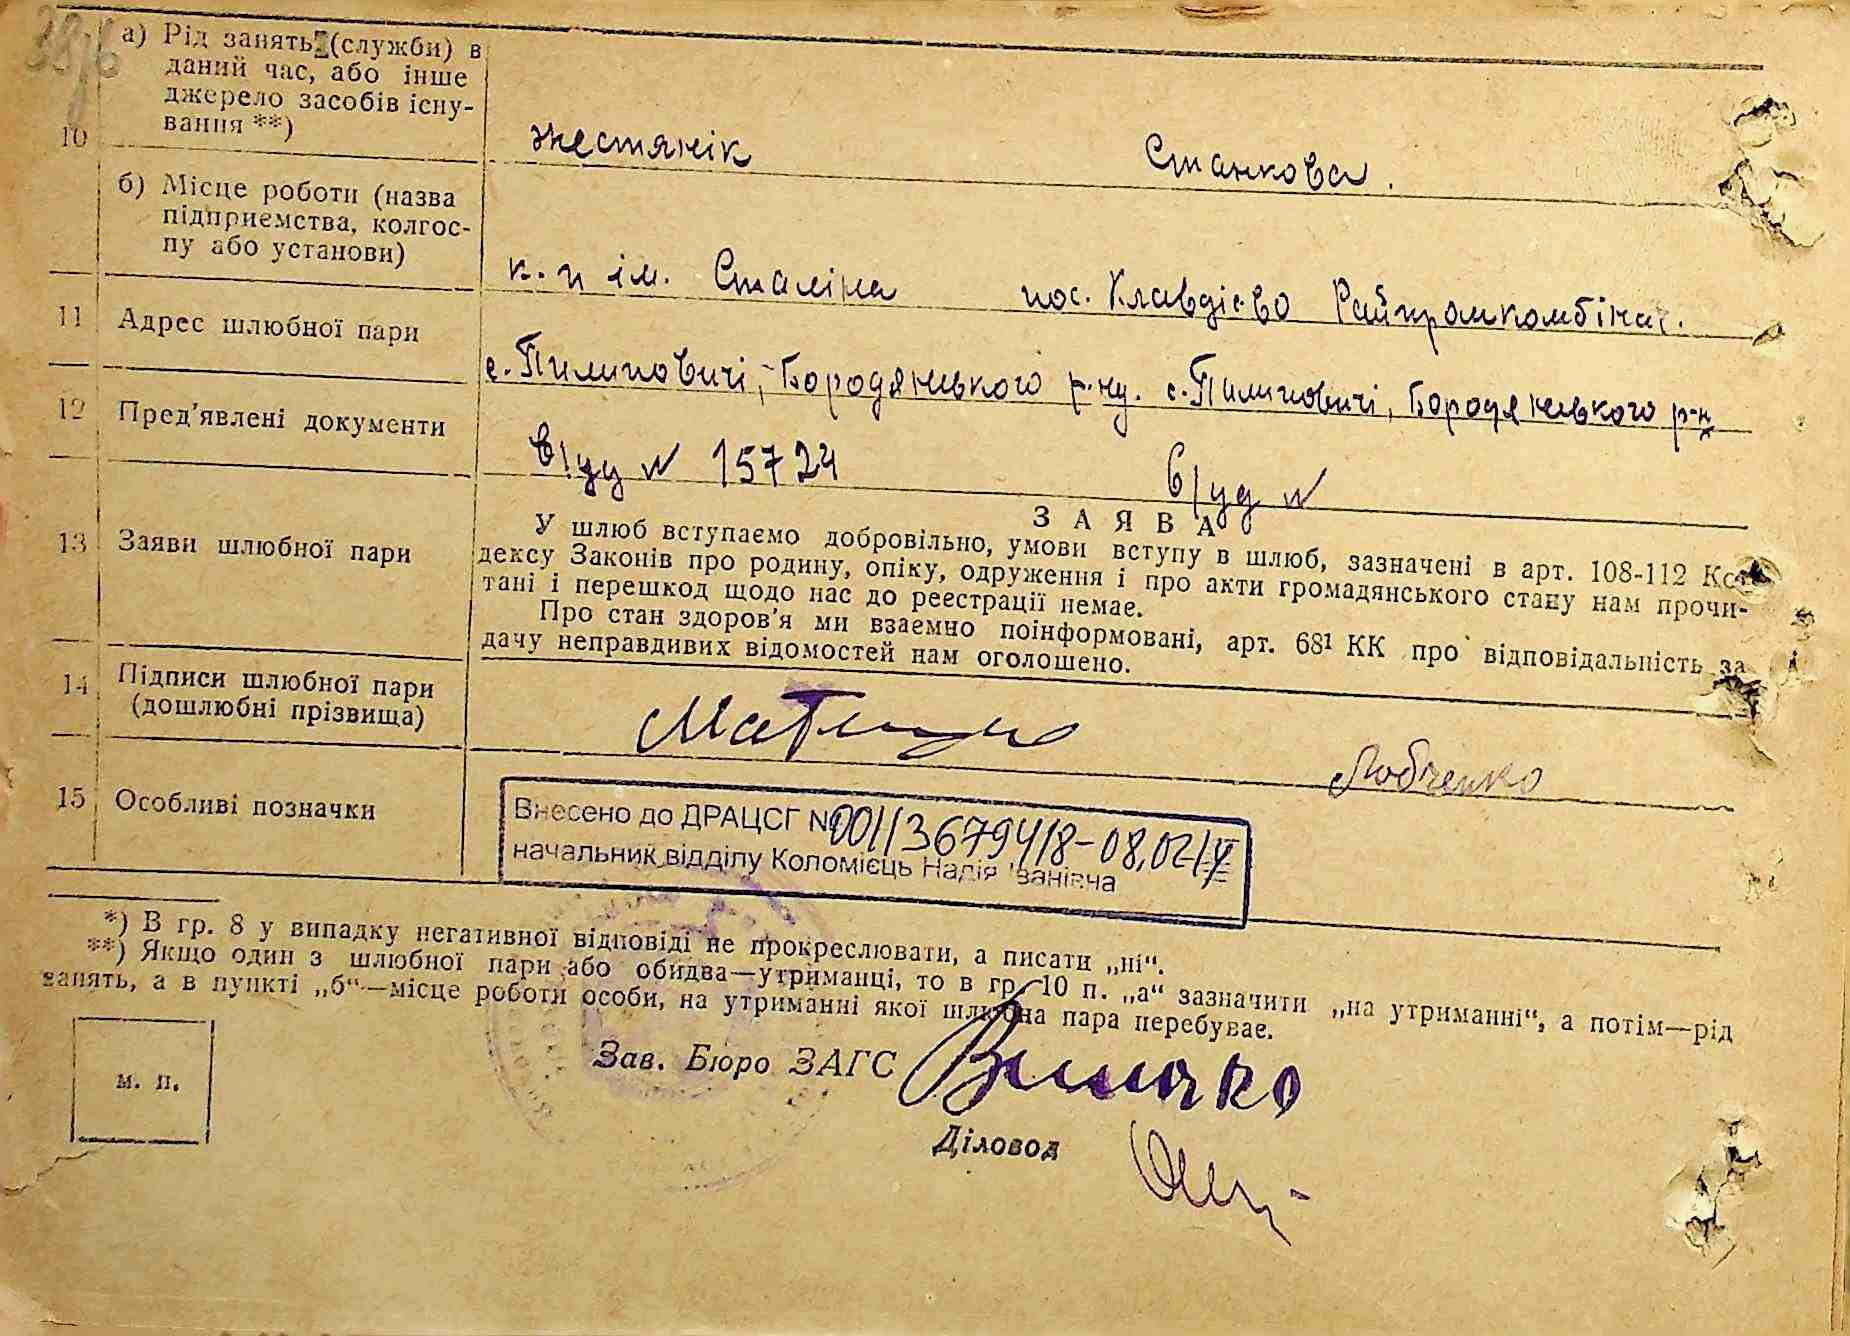 а) Рід занять (служби) в
даний час, або інше
джерело засобів існу-
вання **)
10
жестянік Станкова.
б) Місце роботи (назва
підприемства, колгос-
пу або установи)
к. п ім. Сталіна пос. Клавдієво Райпромкомбінат.
11 Адрес шлюбної пари
с. Пилиповичі, Бородянського р-ну. с. Пилиповичі, Бородянського р-н
12 Пред'явлені документи
в/уд № 15724 в/уд №
13 Заяви шлюбної пари
ЗАЯВА
У шлюб вступаємо добровільно, умови вступу в шлюб, зазначені в арт. 108-112 Ко-
дексу Законів про родину, опіку, одруження і про акти громадянського стану нам прочи-
тані і перешкод щодо нас до реестрації немае.
Про стан здоров'я ми взаемно поінформовані, арт. 68¹ КК про відповідальність за
дачу неправдивих відомостей нам оголошено.
14 Підписи шлюбної пари
(дошлюбні прізвища)
Любченко
15 Особливі позначки
Внесено до ДРАЦСГ №
начальник відділу Коломієць Надія Іванівна
*) В гр. 8 у випадку негативної відповіді не прокреслювати, а писати „ні“.
**) Якщо один з шлюбної пари або обидва—утриманці, то в гр. 10 п. „а“ зазначити „на утриманні“, а потім—рід
занять, а в пункті „б“—місце роботи особи, на утриманні якої шлюбна пара перебувае.
Зав. Бюро ЗАГС
м. п.
Діловод